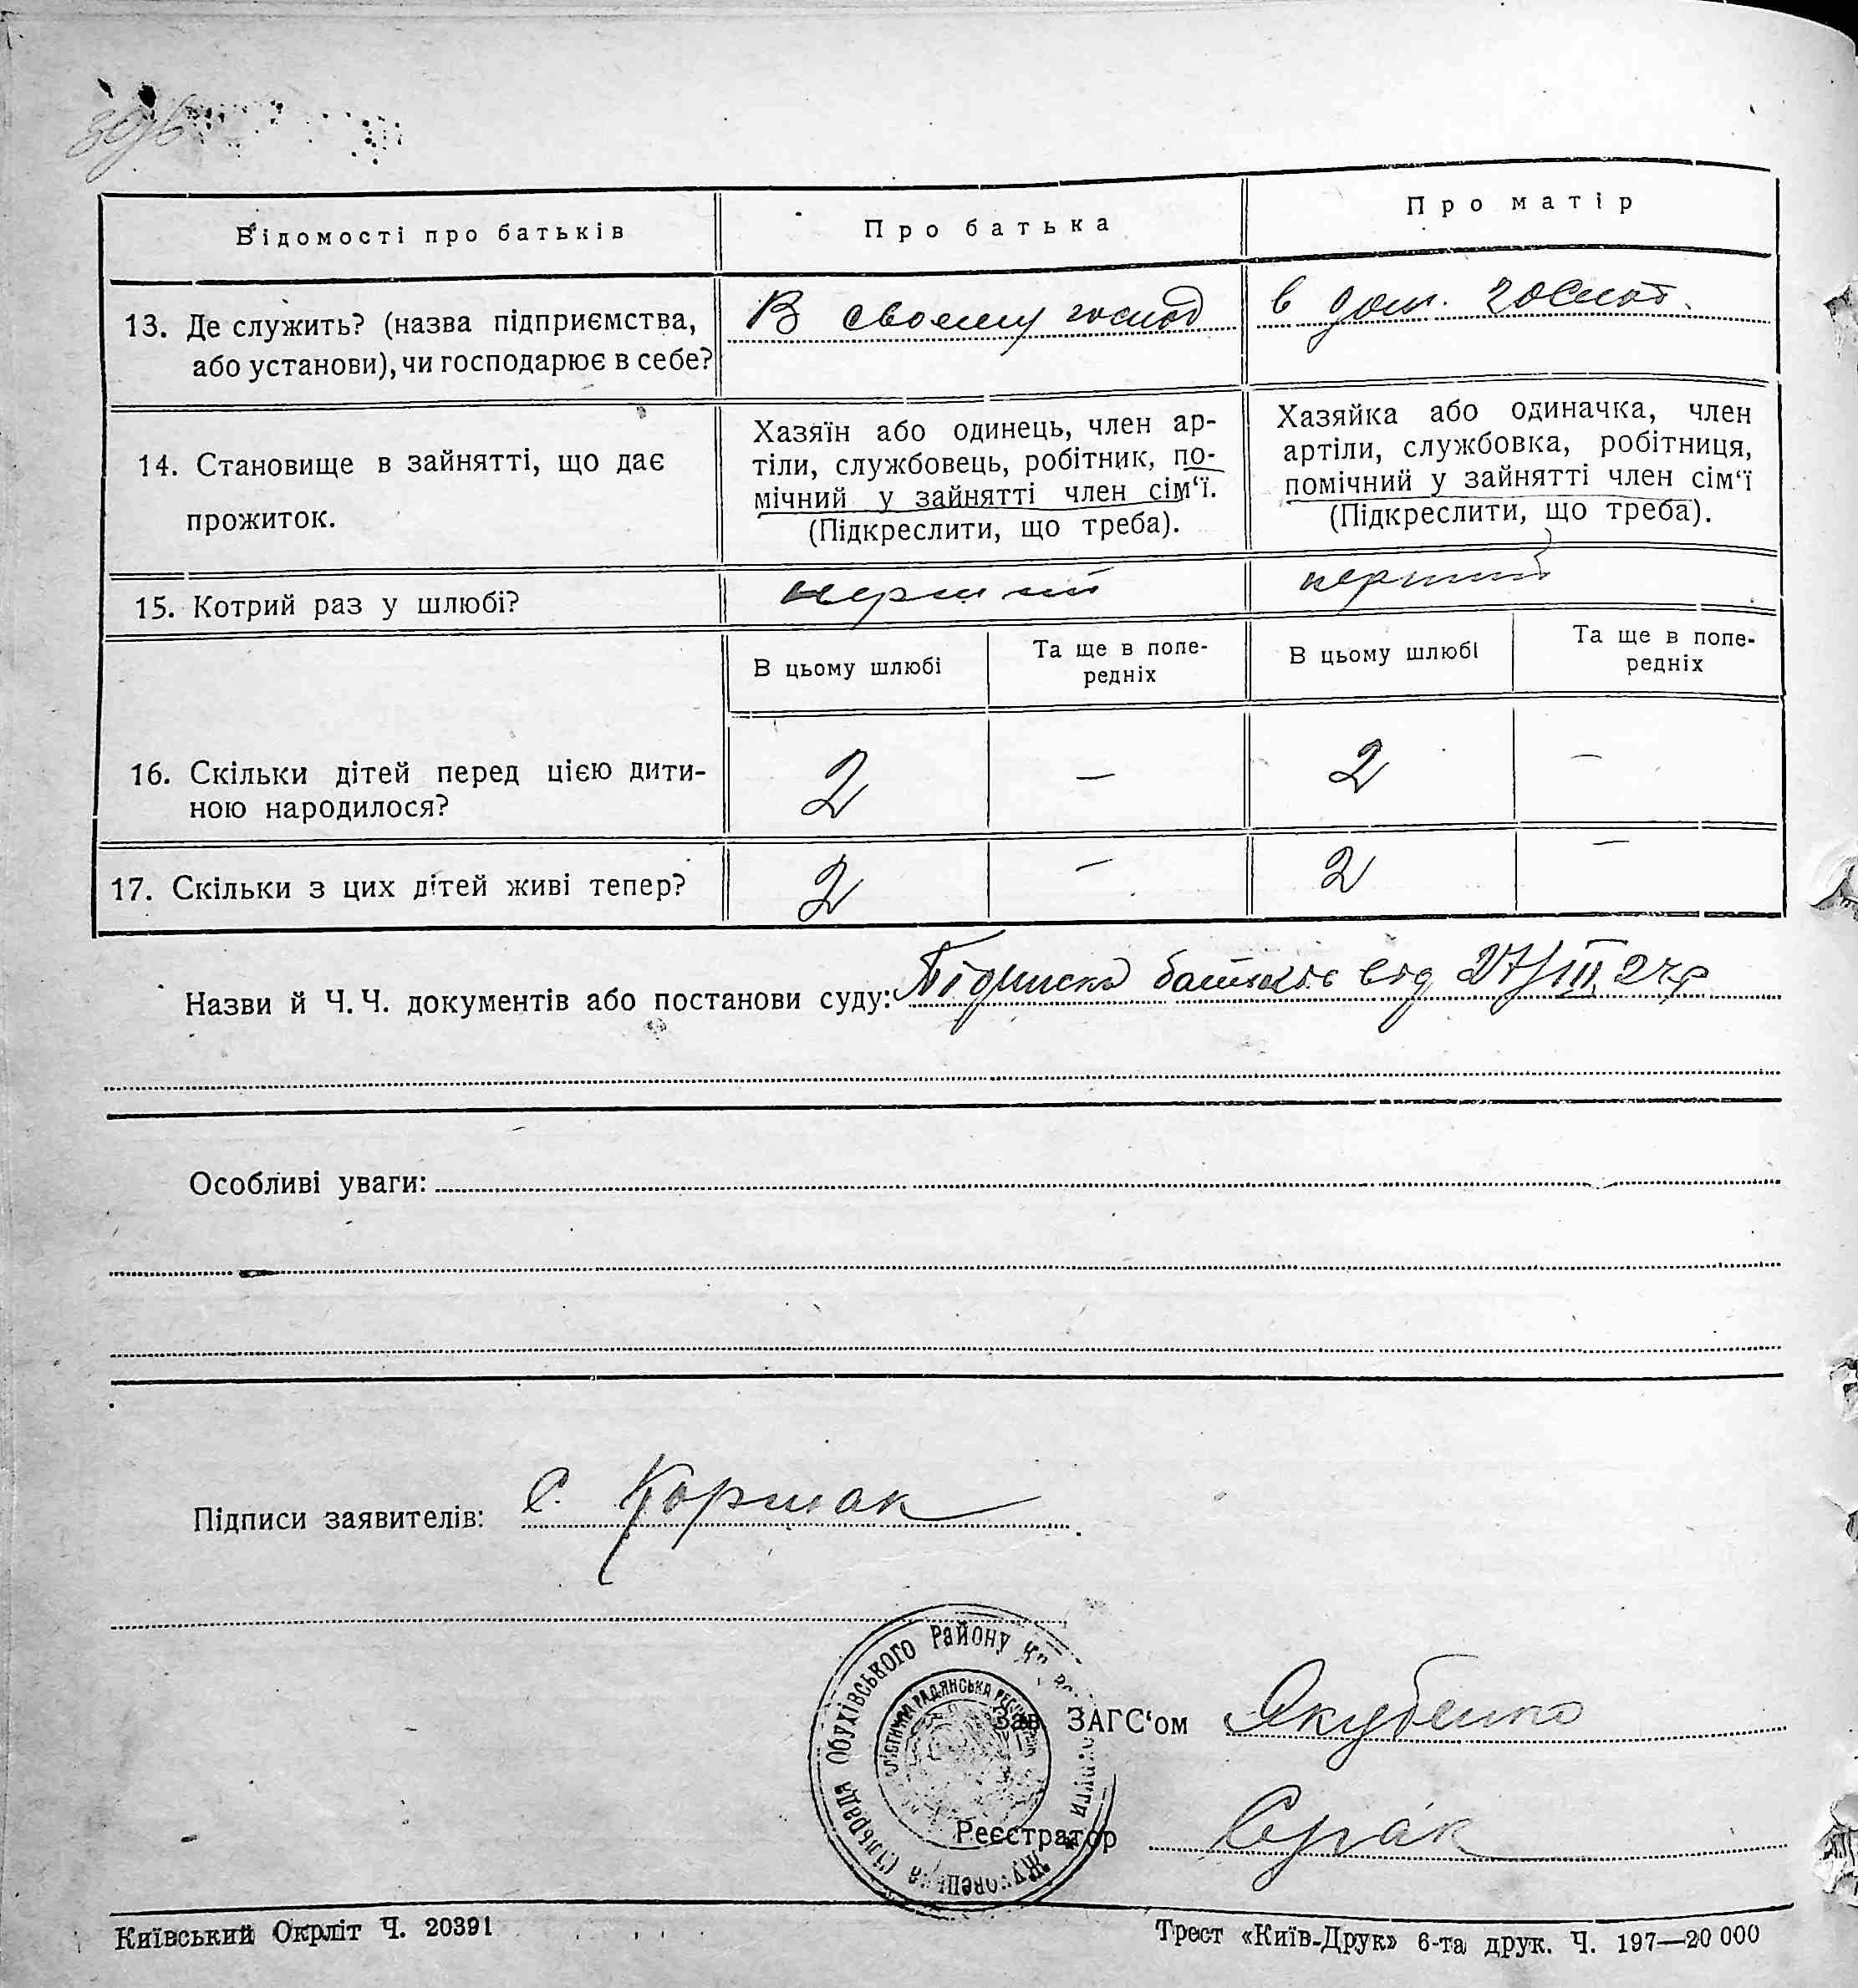 396
Відомості про батьків
Про батька
Про матір
13. Де служить? (назва підприємства, або установи), чи господарює в себе?
В своєму господ
в дом. госпот.
14. Становище в зайнятті, що дає прожиток.
Хазяїн або одинець, член ар-
тіли, службовець, робітник, по-
мічний у зайнятті член сім‘ї.
(Підкреслити, що треба).
Хазяйка або одиначка, член
артіли, службовка, робітниця,
помічний у зайнятті член сім‘ї
(Підкреслити, що треба).
15. Котрий раз у шлюбі?
перший
перший
В цьому шлюбі
Та ще в попе-
редніх
В цьому шлюбі
Та ще в попе-
редніх
16. Скільки дітей перед цією дити-
ною народилося?
2
—
2
—
17. Скільки з цих дітей живі тепер?
2
—
2
—
Назви й Ч.Ч. документів або постанови суду: Підписка батьків від 27/III
Особливі уваги:
Підписи заявителів: С. Коршак
Обухівського Району
Сільрада
Зав. ЗАГС‘ом Якубенко
Реєстратор
Київський Окрліт Ч. 20391
Трест «Київ-Друк» 6-та друк. Ч. 197—20 000